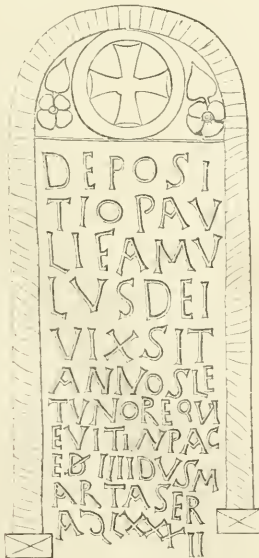 DEPOSI
TIOPAV
LIEAMV
LVSDEI
VIXSIT
ANNOSLE
TVNOREQVI
EVITINPAC
ED IIIIDVSM
ARTASER